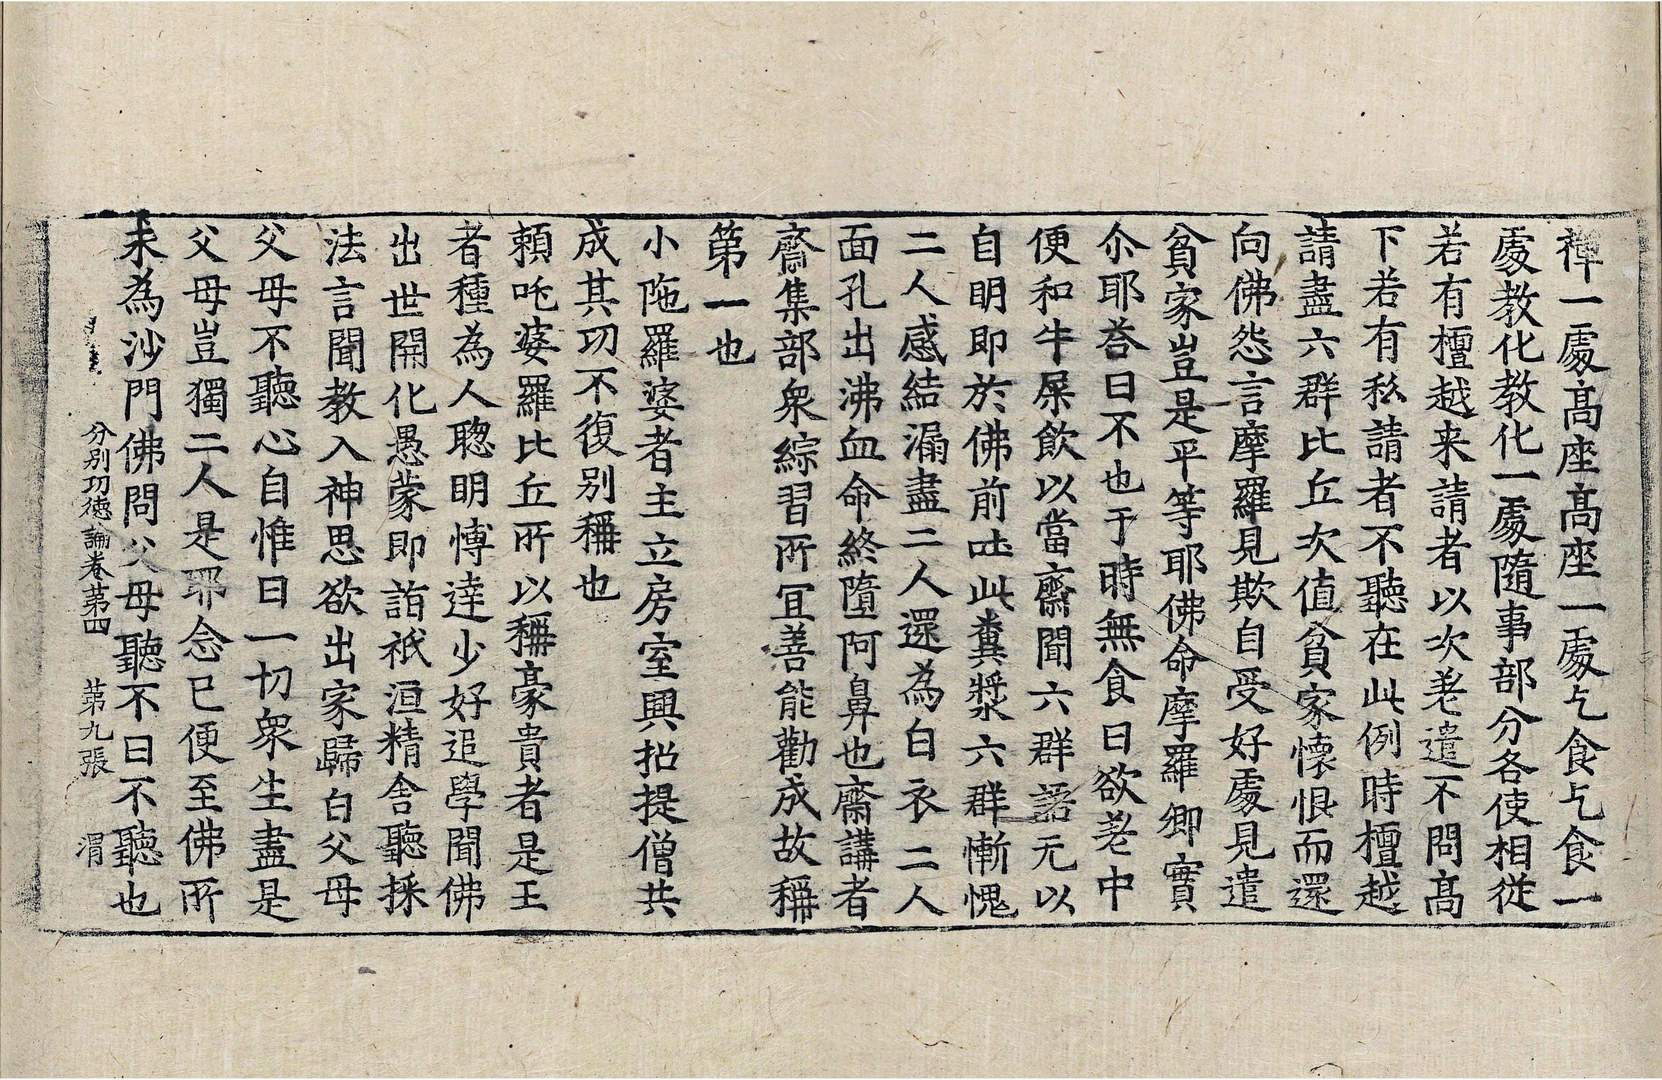 禪一處高座高座一處乞食乞食一
處教化教化一處隨事部分各使相従
若有檀越来請者以次差遣不問髙
下若有私請者不聽在此例時檀越
請盡六群比丘次值貧家懷恨而還
向佛怨言摩羅見欺自受好處見遣
貧家豈是平等耶佛命摩羅卿實
尒耶荅曰不也于時無食日欲差中
便和牛屎飲以當齋聞六群謡无以
自明即於佛前吐此糞漿六群慚愧
二人感結漏盡二人還為白衣二人
面孔出沸血命終墮阿鼻也齋講者
齋集部衆綜習所冝善能勸成故稱
第一也
小陁羅婆者主立房室興招提僧共
成其功不復别稱也
頼吒婆羅比丘所以稱豪貴者是王
者種為人聦明愽達少好追學聞佛
出世開化愚蒙即詣祇洹精舎聽採
法言聞教入神思欲出家歸白父母
父母不聽心自惟曰一切衆生盡是
父母豈獨二人是耶念已便至佛所
求為沙門佛問父母聽不曰不聽也
分别功徳論卷苐四 苐九張 渭